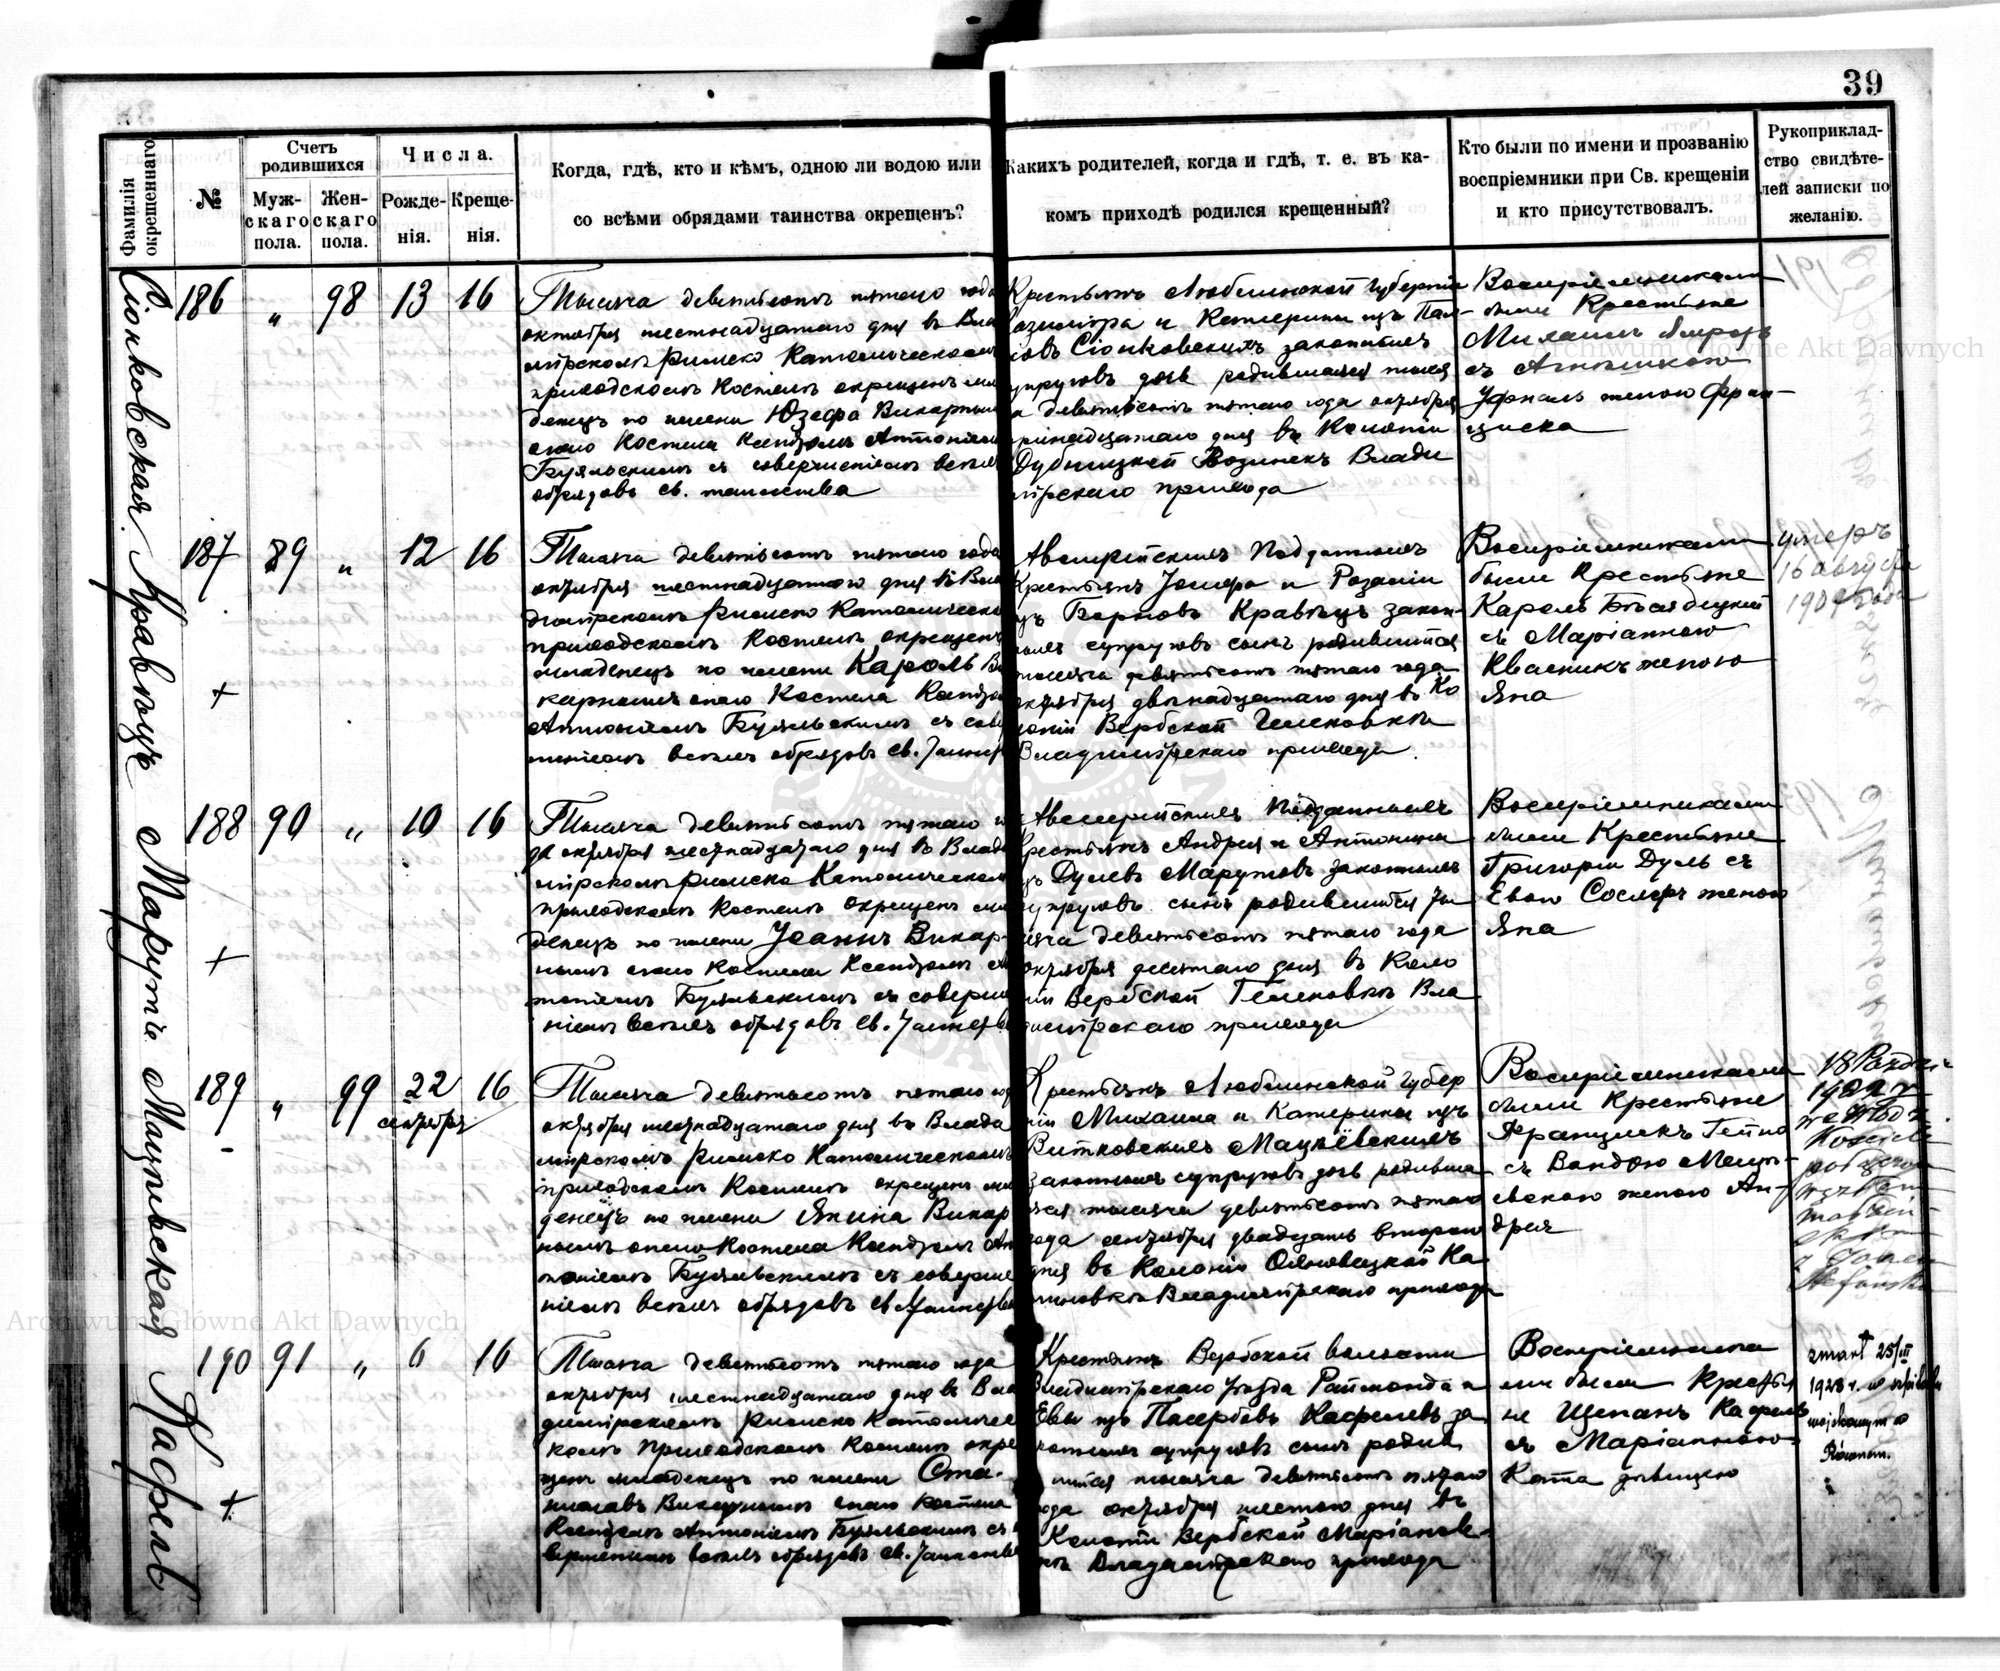 39
Фамилія окрещеннаго.
№
Счетъ родившихся
Муж-
скаго
пола.
Жен-
скаго
пола.
Числа.
Рожде-
нія.
Креще-
нія.
Когда, гдѣ, кто и кѣмъ, одною ли водою или
со всѣми обрядами таинства окрещенъ?
Какихъ родителей, когда и гдѣ, т. е. въ ка-
комъ приходѣ родился крещенный?
Кто были по имени и прозванію
воспріемники при Св. крещеніи
и кто присутствовалъ.
Рукоприклад-
ство свидѣте-
лей записки по
желанію.
Сіонковская
186 „ 98 13 16
Тысяча девятьсотъ пятаго года
октября шестнадцатаго дня въ Вла
мірскомъ римско Католическомъ
приходскомъ Костелѣ окрещенъ мла
денецъ по имени Юзефа Викарнымъ
сего Костела Ксендзомъ Антоніемъ
Буяльскимъ съ совершеніемъ всѣхъ
обрядовъ св. таинства
Крестьянъ Люблинской губерніи
Казиміра и Катерины изъ Пав-
ковъ Сіонковскихъ законныхъ
супруговъ дочь родившаяся тыся
ча девятьсотъ пятаго года октября
тринадцатаго дня въ Колоніи
Дубницкой Влади
мірскаго прихода
Воспріемниками
были Крестьяне
Михаилъ
съ Антониною
женою Фран-
циска
Кравѣцъ
187 89 „ 12 16
Тысяча девятьсотъ пятаго года
октября шестнадцатаго дня въ Вла
димірскомъ римско Католическомъ
приходскомъ Костелѣ окрещенъ
младенецъ по имени Кароль Ви
карнымъ сего Костела Ксендзомъ
Антоніемъ Буяльскимъ съ совер
шеніемъ всѣхъ обрядовъ св. Таинства
Австрійскихъ Подданныхъ
Крестьянъ Іосифа и Розаліи
изъ Кравѣцъ закон-
ныхъ супруговъ сынъ родившійся
тысяча девятьсотъ пятаго года
октября двѣнадцатаго дня въ Ко
лоніи Вербской Геленовкѣ
Владимірскаго прихода.
Воспріемниками
были Крестьяне
Кароль
съ Маріанною
Квасникъ женою
Яна
умеръ
16 августа
+
Марутъ
188 90 „ 10 16
Тысяча девятьсотъ пятаго го
да октября шестнадцатаго дня въ Влади
мірскомъ римско Католическомъ
приходскомъ Костелѣ окрещенъ мла
денецъ по имени Іоаннъ Викар-
нымъ сего Костела Ксендзомъ Ан
тоніемъ Буяльскимъ съ соверше
ніемъ всѣхъ обрядовъ св. Таинства
Австрійскихъ Подданныхъ
Крестьянъ Андрея и Антонины
изъ Дулевъ Марутовъ законныхъ
супруговъ сынъ родившійся ты
сяча девятьсотъ пятаго года
октября десятаго дня въ Коло
ніи Вербской Геленовкѣ Вла
димірскаго прихода
Воспріемниками
были Крестьяне
Григорій Дуль съ
Евою женою
Яна
+
Мацкѣвская
189 „ 99 22 16
сентября
Тысяча девятьсотъ пятаго года
октября шестнадцатаго дня въ Влади
мірскомъ римско Католическомъ
приходскомъ Костелѣ окрещенъ мла
денецъ по имени Янина Викар
нымъ сего Костела Ксендзомъ Ан
тоніемъ Буяльскимъ съ соверше
ніемъ всѣхъ обрядовъ св. Таинства
Крестьянъ Люблинской губер
ніи Михаила и Катерины изъ
Витковскихъ Мацкѣвскихъ
законныхъ супруговъ дочь родивша
яся тысяча девятьсотъ пятаго
года сентября двадцать второго
дня въ Колоніи Ка
Владимірскаго прихода
Воспріемниками
были Крестьяне
Францискъ
съ Вандою
женою Ан-
дрея
18
-
Касфель
190 91 „ 6 16
Тысяча девятьсотъ пятаго года
октября шестнадцатаго дня въ Вла
димірскомъ римско Католичес
комъ Приходскомъ Костелѣ окре
щенъ младенецъ по имени Ста-
ниславъ Викарнымъ сего Костела
Ксендзомъ Антоніемъ Буяльскимъ съ со
вершеніемъ всѣхъ обрядовъ св. Таинства
Крестьянъ Вербской волости
Владимірскаго Уѣзда Раймонда и
Евы изъ за
конныхъ супруговъ сынъ родив
шійся тысяча девятьсотъ пятаго
года октября шестого дня въ
Колоніи Вербской Маріанов-
кѣ Владимірскаго прихода
Воспріемника
ми были Крестья
не Щепанъ
съ Маріанною
дѣвицею
zmarł 25/III
1928 r. w szpitalu
wojskowym w
Równem.
+
Archiwum Główne Akt Dawnych
Archiwum Główne Akt Dawnych